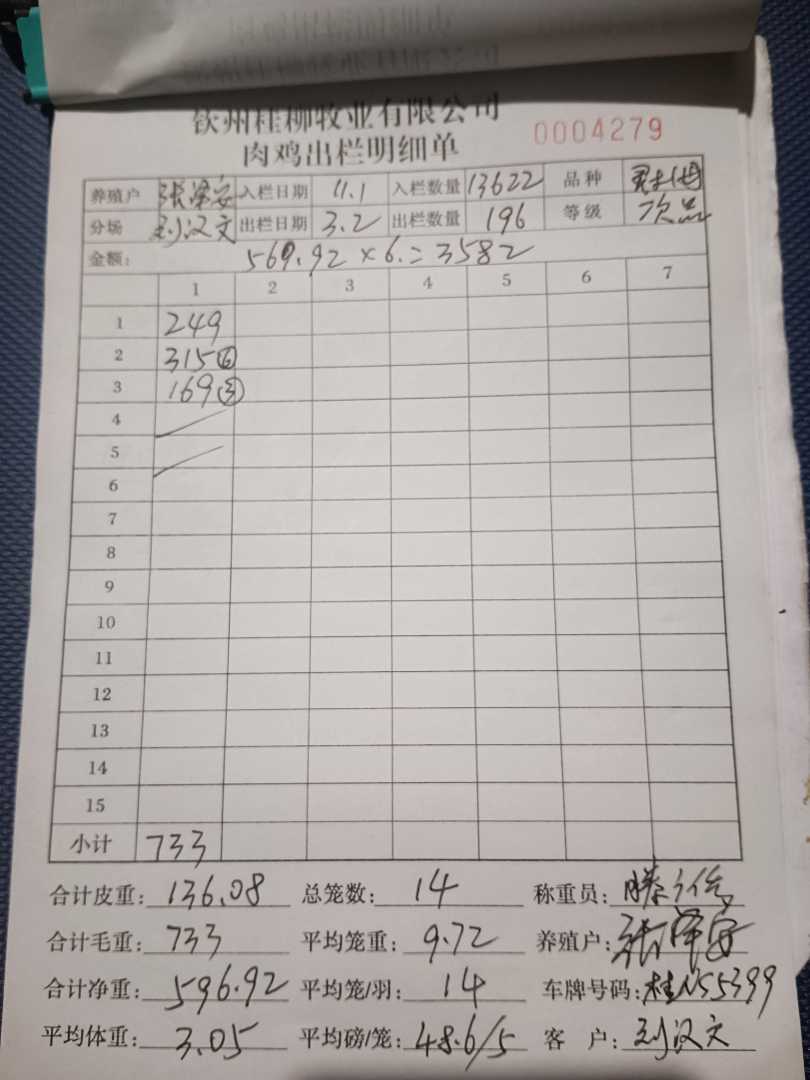 钦州桂柳牧业有限公司
肉鸡出栏明细单 0004279
养殖户 张泽安 入栏日期 11.1 入栏数量 13622 品种
分场 刘汉文 出栏日期 3.2 出栏数量 196 等级 次品
金额: 569.92×6.=3582
1 2 3 4 5 6 7
1 249
2 315⑥
3 169③
4
5
6
7
8
9
10
11
12
13
14
15
小计 733
合计皮重: 136.08 总笼数: 14 称重员:
合计毛重: 733 平均笼重: 9.72 养殖户: 张泽安
合计净重: 596.92 平均笼/羽: 14 车牌号码: 桂N55399
平均体重: 3.05 平均磅/笼: 48.6/5 客 户: 刘汉文